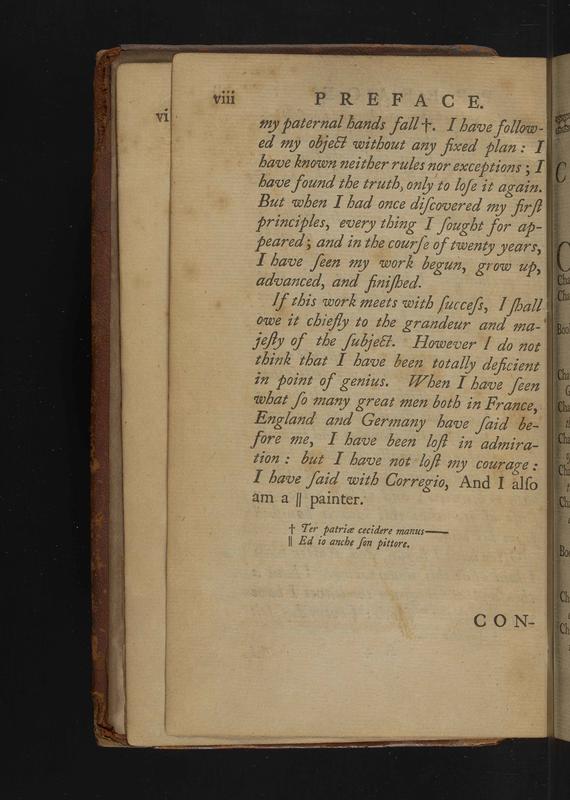 vi
viii PREFACE.
my paternal hands fall †. I have follow-
ed my object without any fixed plan: I
have known neither rules nor exceptions; I
have found the truth, only to loſe it again.
But when I had once diſcovered my firſt
principles, every thing I ſought for ap-
peared; and in the courſe of twenty years,
I have ſeen my work begun, grow up,
advanced, and finiſhed.
If this work meets with ſucceſs, I ſhall
owe it chiefly to the grandeur and ma-
jeſty of the ſubject. However I do not
think that I have been totally deficient
in point of genius. When I have ſeen
what ſo many great men both in France,
England and Germany have ſaid be-
fore me, I have been loſt in admira-
tion: but I have not loſt my courage:
I have ſaid with Corregio, And I alſo
am a || painter.
† Ter patriæ cecidere manus——
|| Ed io anche ſon pittore.
CON-